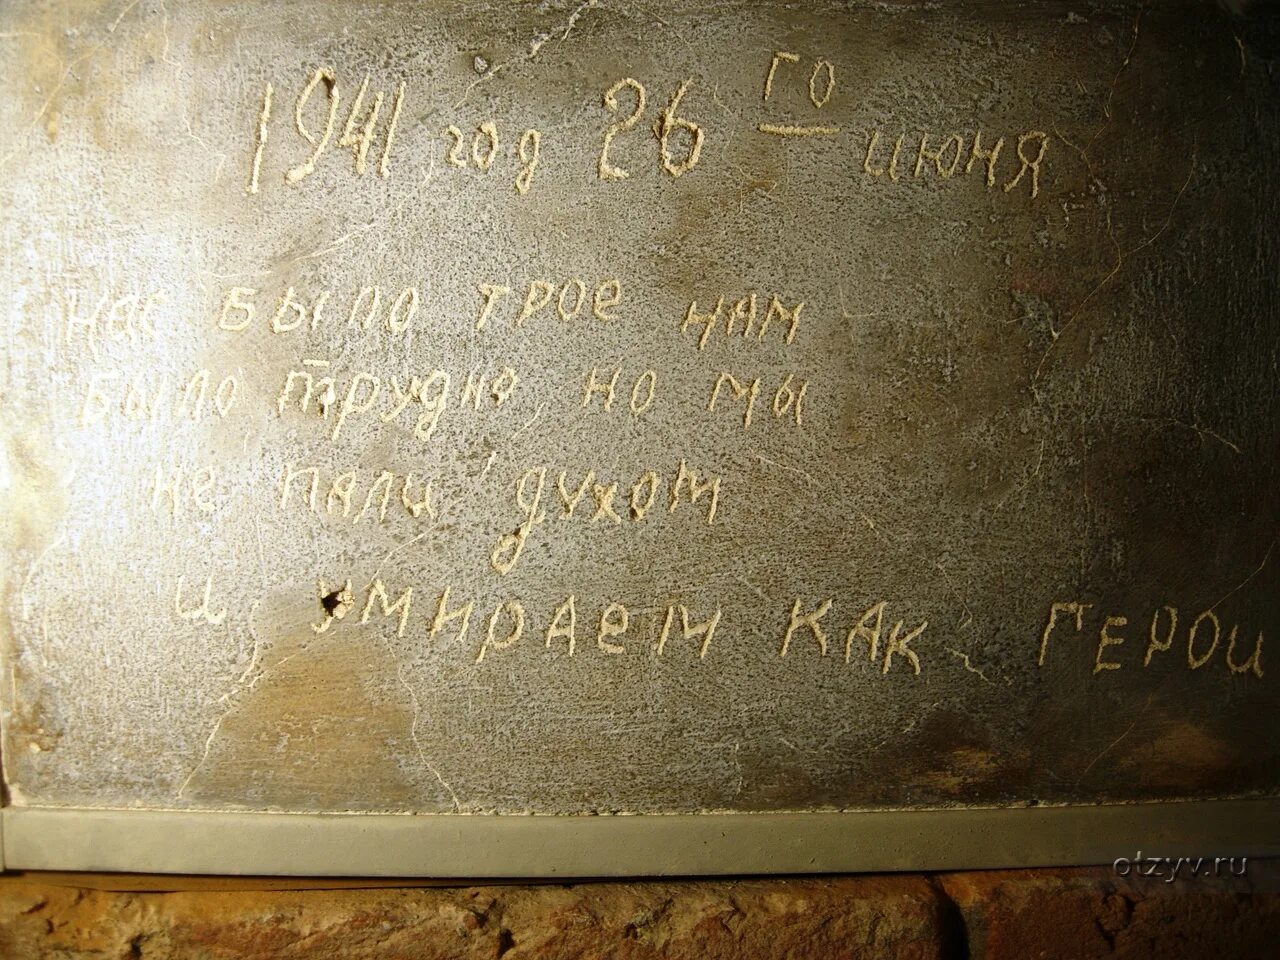 1941 год 26го июня
нас было трое нам
было трудно, но мы
не пали духом
и умираем как герои
otzyv.ru